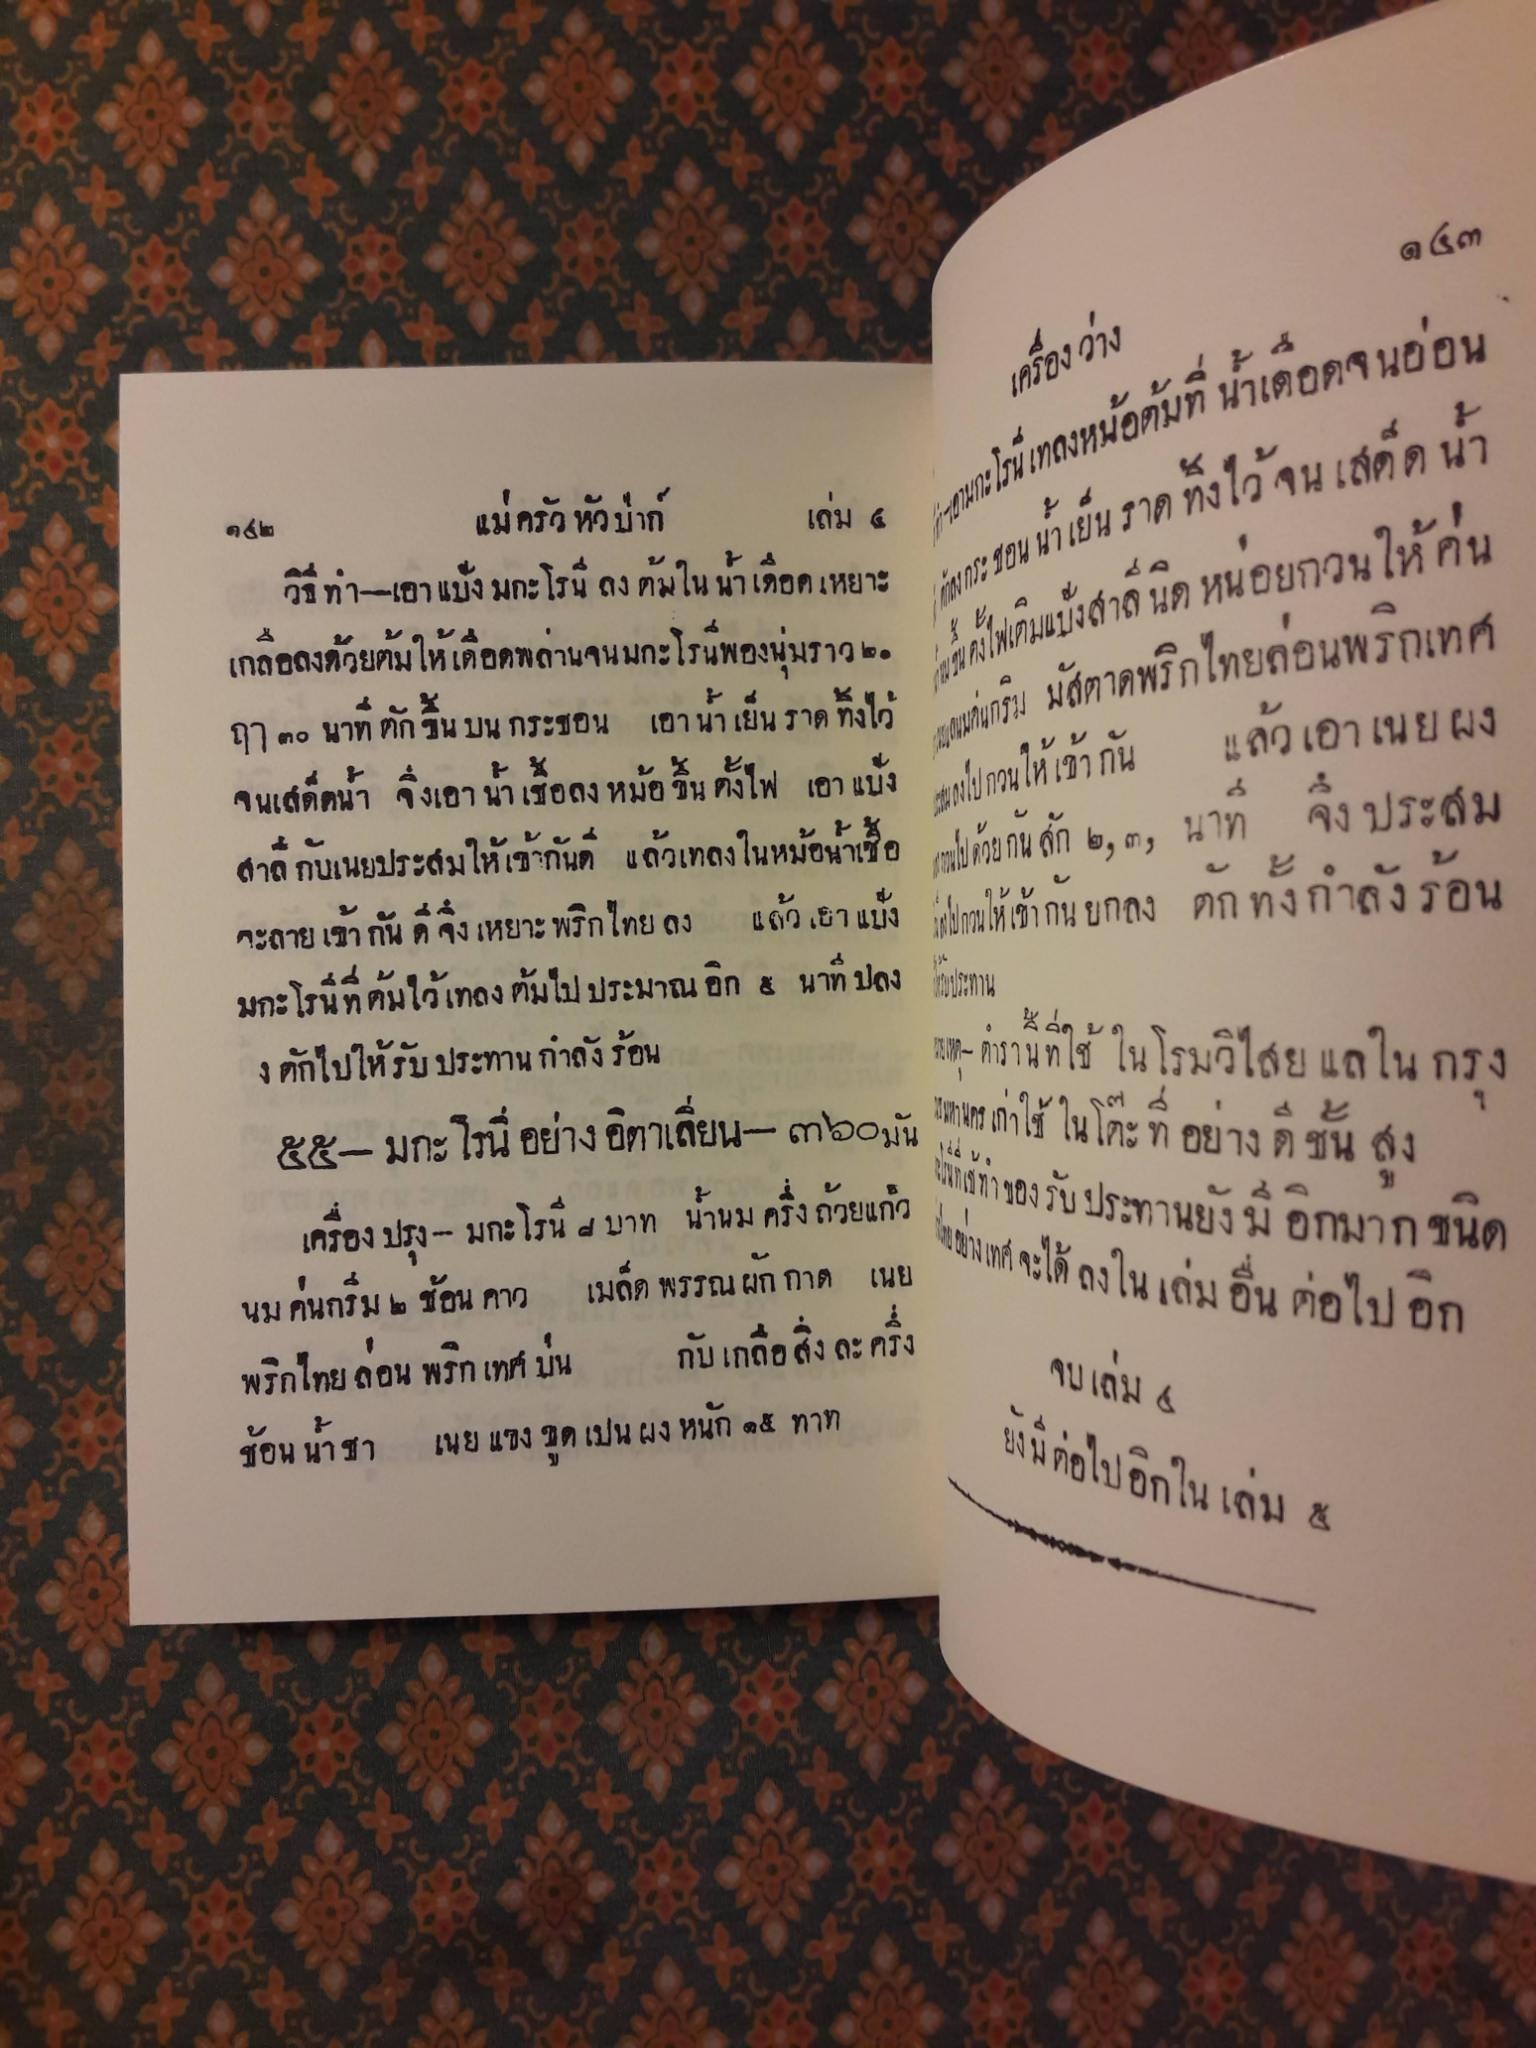 ๑๔๒ แม่ครัวหัวป่าก์ เล่ม ๔
วิธีทำ—เอาแป้งมกะโรนี ลงต้มในน้ำเดือดเหยาะ
เกลือลงด้วยต้มให้เดือดพล่านจนมกะโรนีพองนุ่มราว ๒๐
ฤๅ ๓๐ นาทีตักขึ้นบนกระชอน เอาน้ำเย็นราดทิ้งไว้
จนเสด็ดน้ำ จึ่งเอาน้ำเชื้อลงหม้อขึ้นตั้งไฟ เอาแป้ง
สาลีกับเนยประสมให้เข้ากันดี แล้วเทลงในหม้อน้ำเชื้อ
จะลายเข้ากันดีจึ่งเหยาะพริกไทยลง แล้วเอาแป้ง
มกะโรนีที่ต้มไว้เทลงต้มไปประมาณอิก ๕ นาทีปลง
ง ตักไปให้รับประทานกำลังร้อน
๕๕— มกะโรนีอย่างอิตาเลี่ยน— ๓๖๐มัน
เครื่องปรุง— มกะโรนี ๘ บาท น้ำนมครึ่งถ้วยแก้ว
นมค่นกริม ๒ ช้อนคาว เมล็ดพรรณผักกาด เนย
พริกไทยล่อนพริกเทศป่น กับเกลือสิ่งละครึ่ง
ช้อนน้ำชา เนยแขงขูดเปนผงหนัก ๑๕ บาท
๑๔๓
เครื่องว่าง
เอามกะโรนีเทลงหม้อต้มที่น้ำเดือดจนอ่อน
ตักลงกระชอนน้ำเย็นราดทิ้งไว้จนเสด็ดน้ำ
ขึ้นตั้งไฟเติมแป้งสาลีนิดหน่อยกวนให้ค่น
นมค่นกริม มัสตาดพริกไทยล่อนพริกเทศ
ลงไปกวนให้เข้ากัน แล้วเอาเนยผง
กวนไปด้วยกันสัก ๒, ๓, นาที จึ่งประสม
ลงไปกวนให้เข้ากันยกลง ตักทั้งกำลังร้อน
ให้รับประทาน
ตำรานี้ที่ใช้ในโรมวิไสยแลในกรุง
มหานครเก่าใช้ในโต๊ะที่อย่างดีชั้นสูง
ที่เข้าทำของรับประทานยังมีอิกมากชนิด
อย่างเทศจะได้ลงในเล่มอื่นต่อไปอิก
จบเล่ม ๔
ยังมีต่อไปอิกในเล่ม ๕